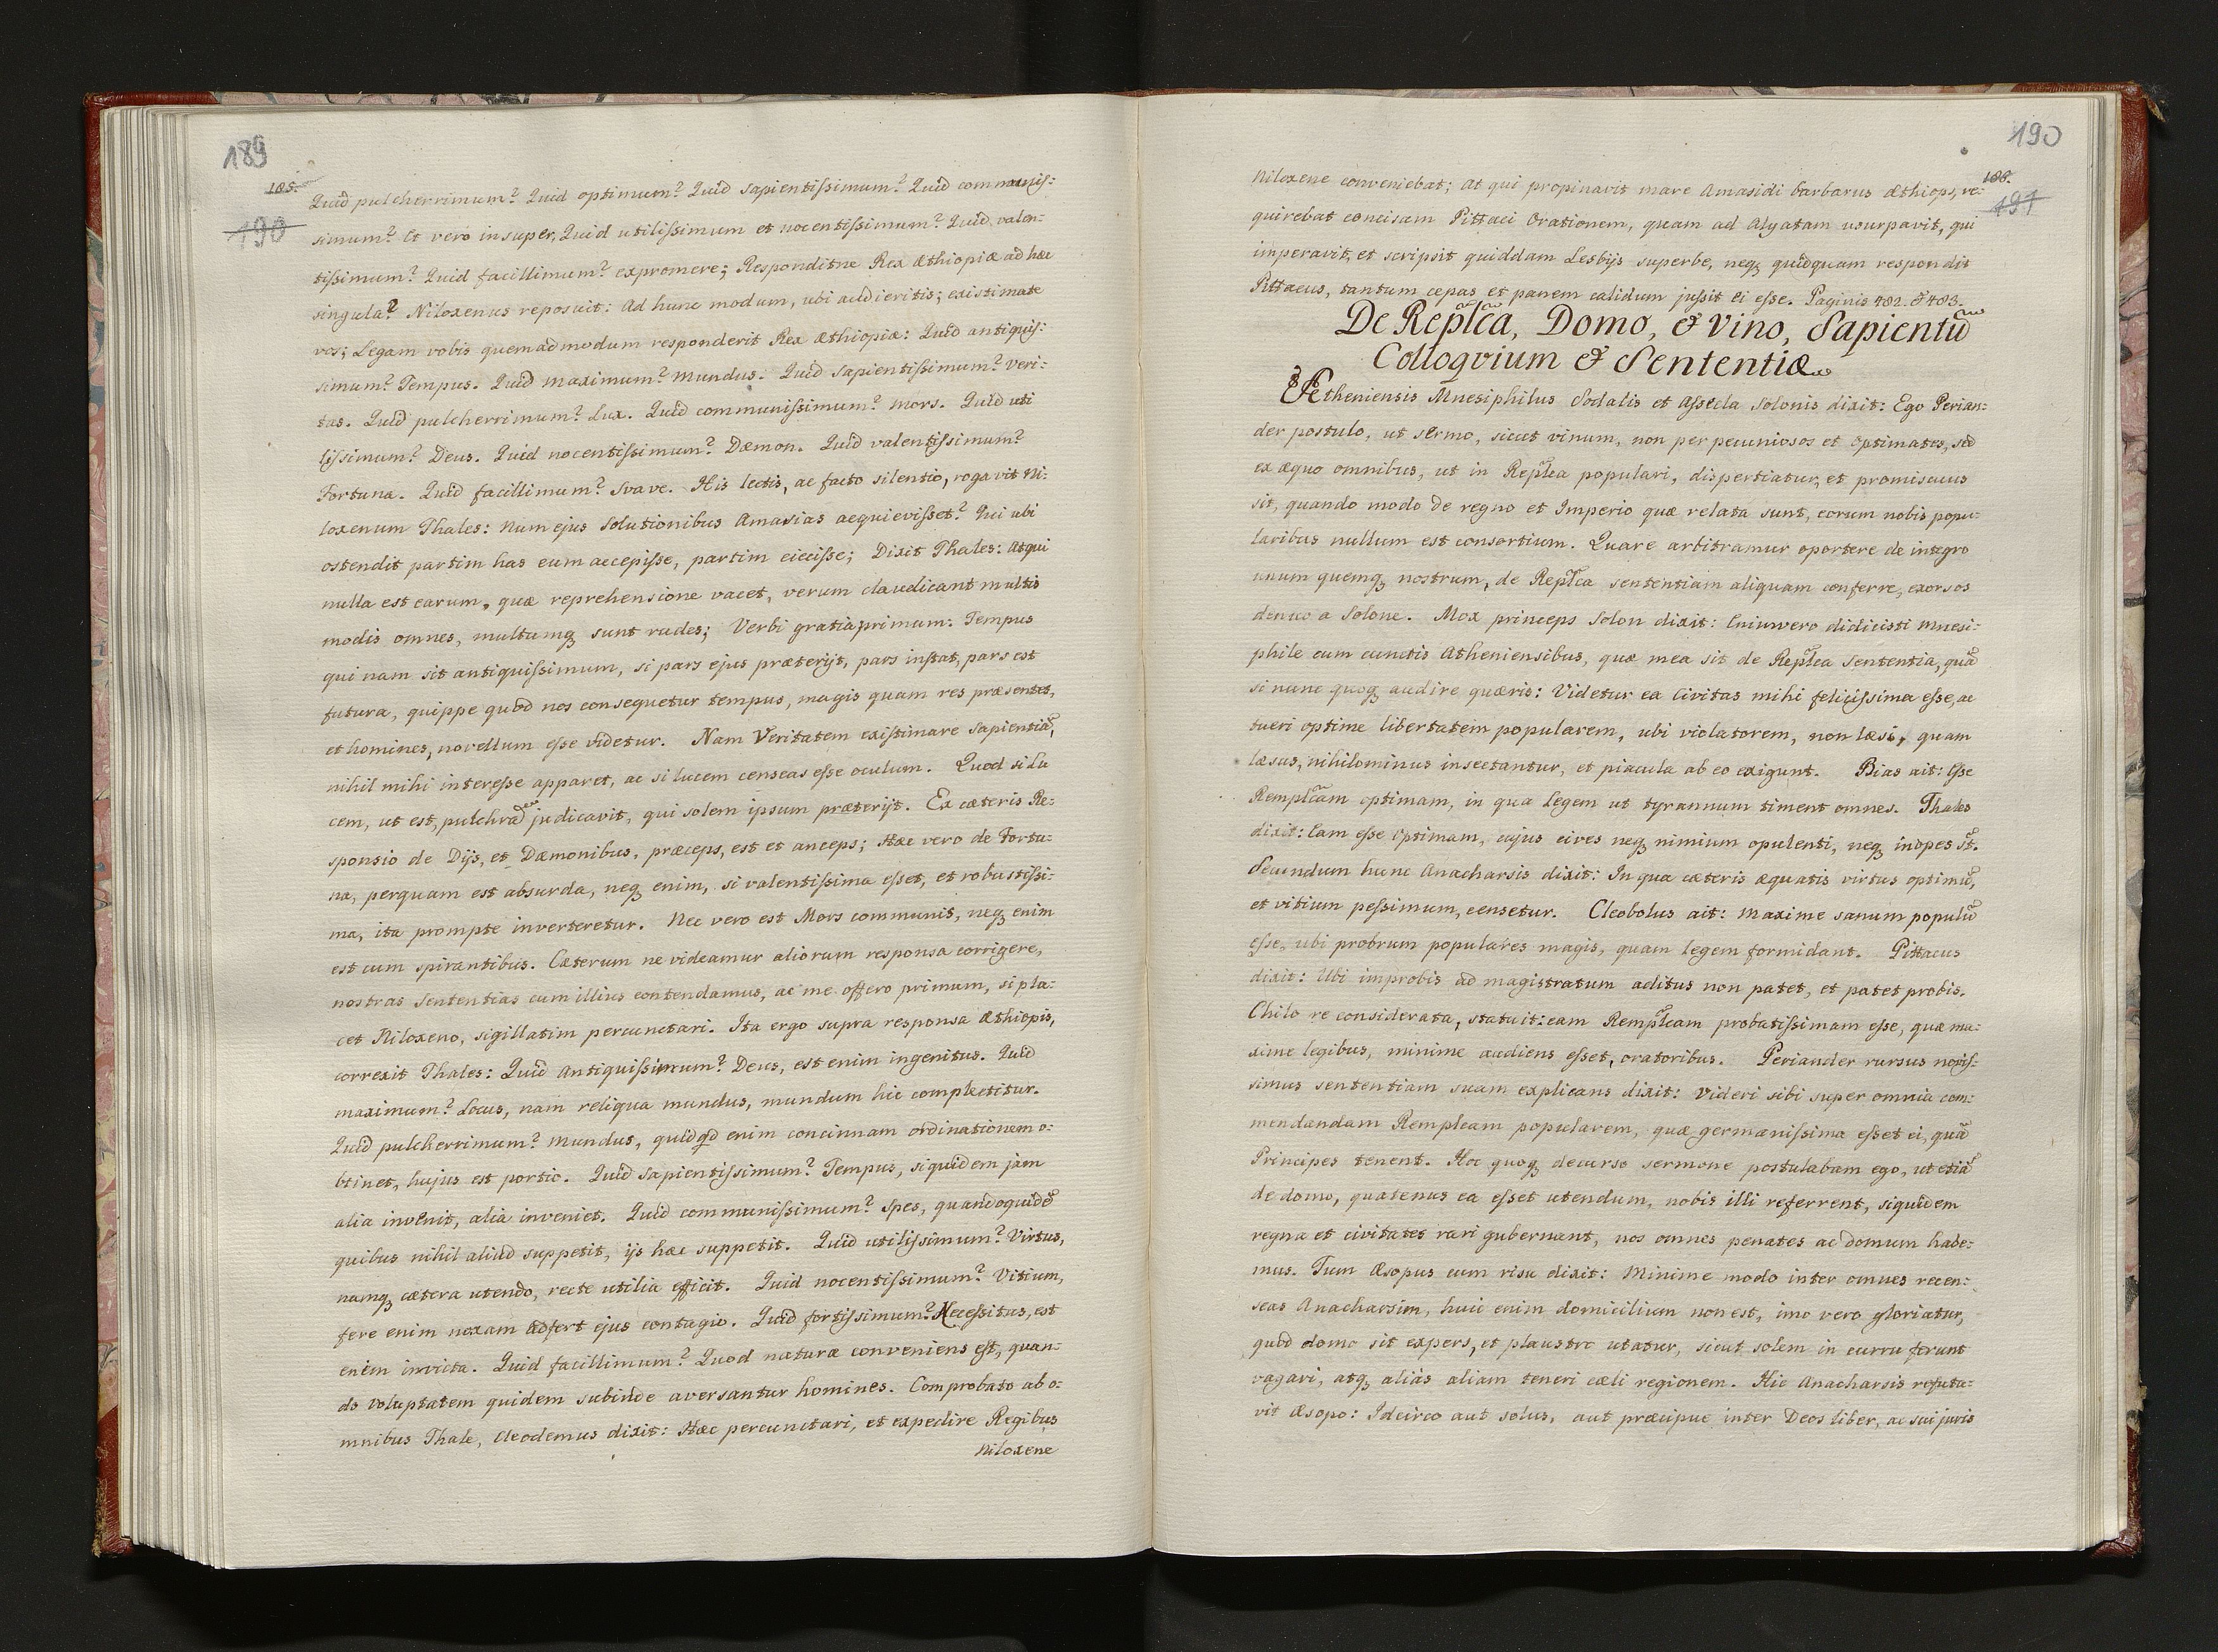 189
185.
190
Quid pulcherrimum? Quid optimum? Quid sapientissimum? Quid communis:
simum? Et vero insuper, Quid utilissimum et nocentissimum? Quid valen-
tissimum? Quid facillimum? expromere; Responditne Rex Æthiopiæ ad hæc
singula? Niloxenus reposuit: Ad hunc modum, ubi audieritis; existimate
vos; Legam vobis quemadmodum responderit Rex Æthiopiæ: Quid antiquis:
simum? Tempus. Quid maximum? Mundus. Quid sapientissimum? Veri:
tas. Quid pulcherrimum? Lux. Quid communissimum? Mors. Quid uti
lissimum? Deus. Quid nocentissimum? Dæmon. Quid valentissimum?
Fortuna. Quid facillimum? Svave. His lectis, ac facto silentio, rogavit Ni:
loxenum Thales: Num ejus solutionibus Amasias acquievisset? Qui ubi
ostendit partim has eum accepisse, partim eiecisse; Dixit Thales: Atqui
nulla est earum, quæ reprehensione vacet, verum claudicant multis
modis omnes, multumq; sunt rudes; Verbi gratia primum: Tempus
qui nam sit antiquissimum, si pars ejus præterijt, pars instat, pars est
futura, quippe quod nos consequetur tempus, magis quam res præsentes,
et homines, novellum esse videtur. Nam Veritatem existimare Sapientiã,
nihil mihi interesse apparet, ac si lucem censeas esse oculum. Quod si Lu
cem, ut est, pulchrã judicavit, qui solem ipsum præterijt. Ex cæteris Re:
sponsio de Dijs, et Dæmonibus, præceps, est et anceps; Hæc vero de Fortu:
na, perquam est absurda, neq; enim, si valentissima esset, et robustissi:
ma, ita prompte inverteretur. Nec vero est Mors communis, neq; enim
est cum spirantibus. Cæterum ne videamur aliorum responsa corrigere,
nostras sententias cum illius contendamus, ac me offero primum, si pla:
cet Niloxeno, sigillatim percunctari. Ita ergo supra responsa Æthiopis,
correxit Thales: Quid Antiquissimum? Deus, est enim ingenitus. Quid
maximum? Locus, nam reliqua mundus, mundum hic complectitur.
Quid pulcherrimum? Mundus, quidqd enim concinnam ordinationem o:
btinet, hujus est portio. Quid sapientissimum? Tempus, siquidem jam
alia invenit, alia inveniet. Quid communissimum? Spes, quandoquidẽ
quibus nihil aliud suppetit, ijs hæc suppetit. Quid utilissimum? Virtus,
namq; cætera utendo, recte utilia efficit. Quid nocentissimum? Vitium,
fere enim noxam adfert ejus contagio. Quid fortissimum? Necessitas, est
enim invicta. Quid facillimum? Quod naturæ conveniens est, quan:
do voluptatem quidem subinde aversantur homines. Comprobato ab o:
mnibus Thale, Cleodemus dixit: Hæc percunctari, et expedire Regibus
Niloxene
190
188.
191
Niloxene conveniebat; At qui propinavit mare Amasidi barbarus Æthiops, re:
quirebat concisam Pittaci Orationem, quam ad Alyatam usurpavit, qui
imperavit, et scripsit quiddam Lesbijs superbe, neq; quidquam respondit
Pittacus, tantum cepas et panem calidum jussit ei esse. Paginis 402. & 403.
De Replca, Domo, & Vino, Sapientũ
Colloqvium & Sententiæ
Atheniensis Mnesiphilus Sodalis et Assecla Solonis dixit: Ego Perian:
der postulo, ut sermo, sicut vinum, non per pecuniosos et Optimates, sed
ex æquo omnibus, ut in Replca populari, dispertiatur, et promiscuus
sit, quando modo de regno et Imperio quæ relata sunt, eorum nobis popu:
laribus nullum est consortium. Quare arbitramur oportere de integro
unum quemq; nostrum, de Replca sententiam aliquam conferre, exorsos
denuo a Solone. Mox princeps Solon dixit: Enimvero didicisti Mnesi:
phile cum cunctis Atheniensibus, quæ mea sit de Replca Sententia, quã
si nunc quoq; audire quæris: Videtur ea Civitas mihi felicissima esse, ac
tueri optime libertatem popularem, ubi violatorem, non læsi, quam
læsus, nihilominus insectantur, et piacula ab eo exigunt. Bias ait: Esse
Remplcam optimam, in qua Legem ut tyrannum timent omnes. Thales
dixit: Eam esse Optimam, cujus cives neq; nimium opulenti, neq; inopes st.
Secundum hunc Anacharsis dixit: In qua cæteris æquatis virtus optimũ,
et vitium pessimum, censetur. Cleobolus ait: Maxime sanum populũ
esse, ubi probrum populares magis, quam legem formidant. Pittacus
dixit: Ubi improbis ad magistratum aditus non patet, et patet probis.
Chilo re considerata, statuit: eam Remplcam probatissimam esse, quæ ma:
xime legibus, minime audiens esset, oratoribus. Periander rursus novis:
simus sententiam suam explicans dixit: Videri sibi super omnia com:
mendandam Remplcam popularem, quæ germanissima esset ei, quã
Principes tenent. Hoc quoq; decurso sermone postulabam ego, ut etiã
de domo, quatenus ea esset utendum, nobis illi referrent, siquidem
regna et civitates rari gubernant, nos omnes penates ac domum habe:
mus. Tum Æsopus cum risu dixit: Minime modo inter omnes recen:
seas Anacharsim, huic enim domicilium non est, imo vero gloriatur,
quod domo sit expers, et plaustro utatur, sicut solem in curru ferunt
vagari, atq; alias aliam teneri cæli regionem. Hic Anacharsis refuta:
vit Æsopo: Idcirco aut solus, aut præcipue inter Deos liber, ac sui juris